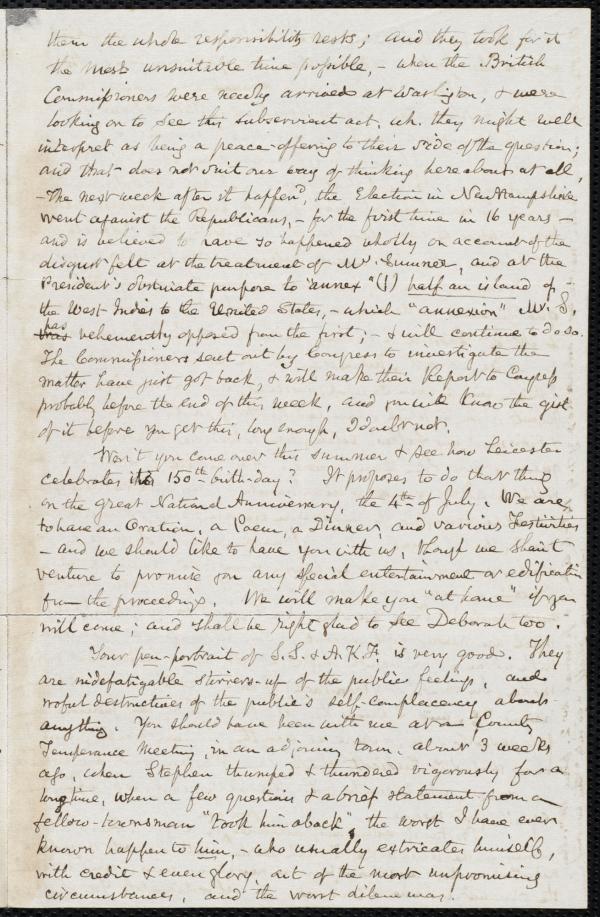 them the whole responsibility rests; and they took for it
the most unsuitable time possible, - when the British
Commissioners were newly arrived at Washington, & were
looking on to see this subservient act, wh. they might well
interpret as being a peace-offering to their side of the question;
and that does not suit our way of thinking hereabout at all.
- The next week after it happend, the Election in New Hampshire
went against the Republicans, - for the first time in 16 years -
and is believed to have so happened wholly on account of the
disgust felt at the treatment of Mr. Sumner, and at the
President's obstinate purpose to "annex" (!) half an island of
the West Indies to the United States, - which "annexion" Mr. S.
has vehemently opposed from the first; - & will continue to do so.
The Commissioners sent out by Congress to investigate the
matter have just got back, & will make their Report to Congress
probably before the end of this week, and you will know the gist
of it before you get this, long enough, I doubt not.
Won't you come over this summer & see how Leicester
celebrates its 150th birth-day? It proposes to do that thing
on the great National Anniversary, the 4th of July. We are
to have an Oration, a Poem, a Dinner, and various Festivities
- and we should like to have you with us, though we shan't
venture to promise you any special entertainment or edification
from the proceedings. We will make you "at home" if you
will come; and shall be right glad to see Deborah too.
Your pen-portrait of S.S. & A.K.F. is very good. They
are indefatigable stirrers-up of the public feelings, and
woful destructives of the public's self-complacency about
anything. You should have been with me at a County
Temperance Meeting, in an adjoining town, about 3 weeks
ago, when Stephen thumped & thundered vigorously for a
long time, when a few questions & a brief statement from a
fellow-townsman "took him aback", the worst I have ever
known happen to him, - who usually extricates himself,
with credit & even glory, out of the most unpromising
circumstances, and the worst dilemmas.